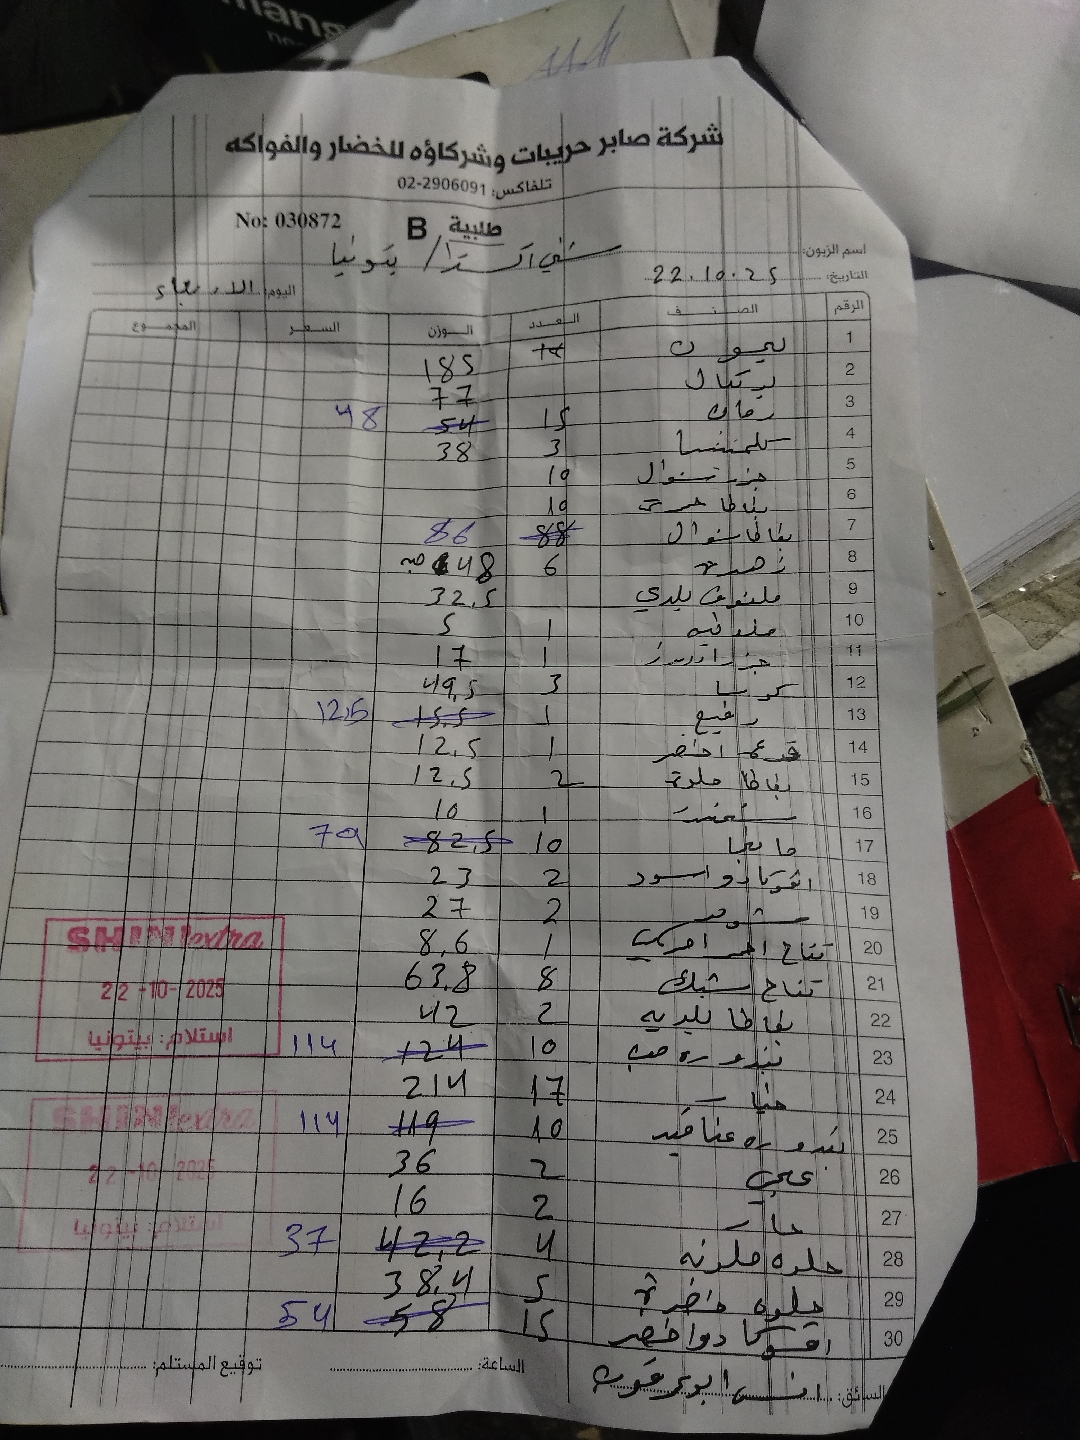 شركة صابر حريبات وشركاؤه للخضار والفواكه
تلفاكس: 02-2906091
No: 030872 طلبية B
اسم الزبون: شني اكسترا / بتونيا
التاريخ: 22.10.25 اليوم: الاربعاء
الرقم الصنف العدد الوزن السعر المجموع
1 ليمون 185
2 برتقال 77
3 رمان 15 54 48
4 كلمنتينا 3 38
5 جزر شوال 10
6 بطاطا حمرة 10
7 بطاطا شوال 88 86
8 زهرة 6 48
9 ملفوف بلدي 32.5
10 1 5
11 جزر 1 17
12 كوسا 3 49.5
13 رفيع 1 15.5 12.5
14 قرع اخضر 1 12.5
15 بطاطا حلوة 2 12.5
16 شمندر 1 10
17 مانجا 10 82.5 79
18 افوكادو اسود 2 23
19 شومر 2 27
20 تفاح احمر امريكي 1 8.6
21 تفاح 8 63.8
22 بطاطا بلديه 2 42
23 بندوره حب 10 124 114
24 خيار 17 214
25 بندوره عناقيد 10 119 114
26 2 36
27 حار 2 16
28 حلوه ملونه 4 42.2 37
29 حلوه خضرة 5 38.4
30 افوكادو اخضر 15 58 54
الساعة: توقيع المستلم:
السائق: انس ابو
SHINI extra
22-10-2025
استلام: بيتونيا
SHINI extra
22-10-2025
استلام: بيتونيا